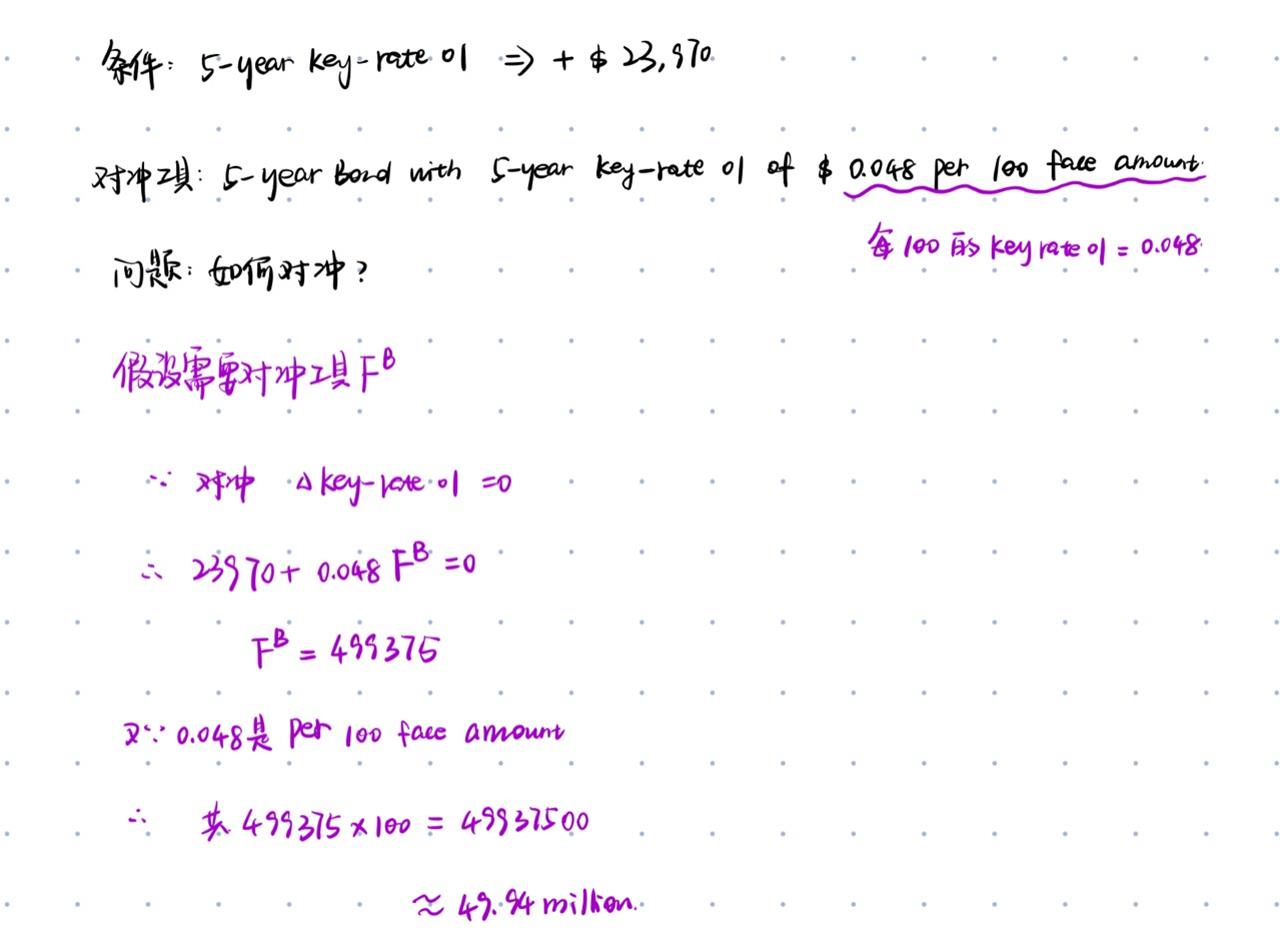 条件: 5-year key-rate 01 ⇒ + $ 23,970
对冲工具: 5-year Bond with 5-year key-rate 01 of $ 0.048 per 100 face amount.
每 100 的 key rate 01 = 0.048
问题: 如何对冲?
假设需要对冲工具 Fᴮ
∵ 对冲 Δkey-rate 01 =0
∴ 23970+ 0.048 Fᴮ =0
Fᴮ = 499375
又∵ 0.048是 per 100 face amount
∴ 共 499375 × 100 = 49937500
≈ 49.94 million.